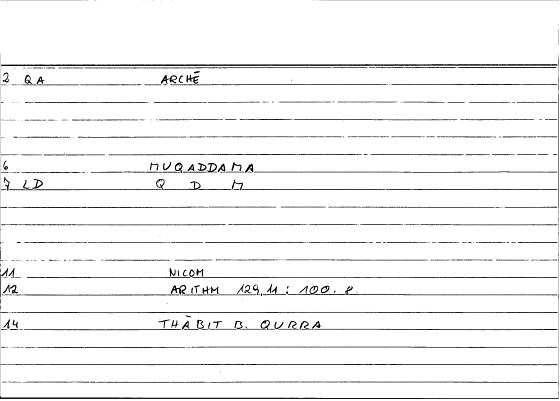 2 QA ARCHĒ
6 MUQADDAMA
7 LD Q D M
11 NICOM
12 ARITHM 129,11 : 100. 8
14 THĀBIT B. QURRA